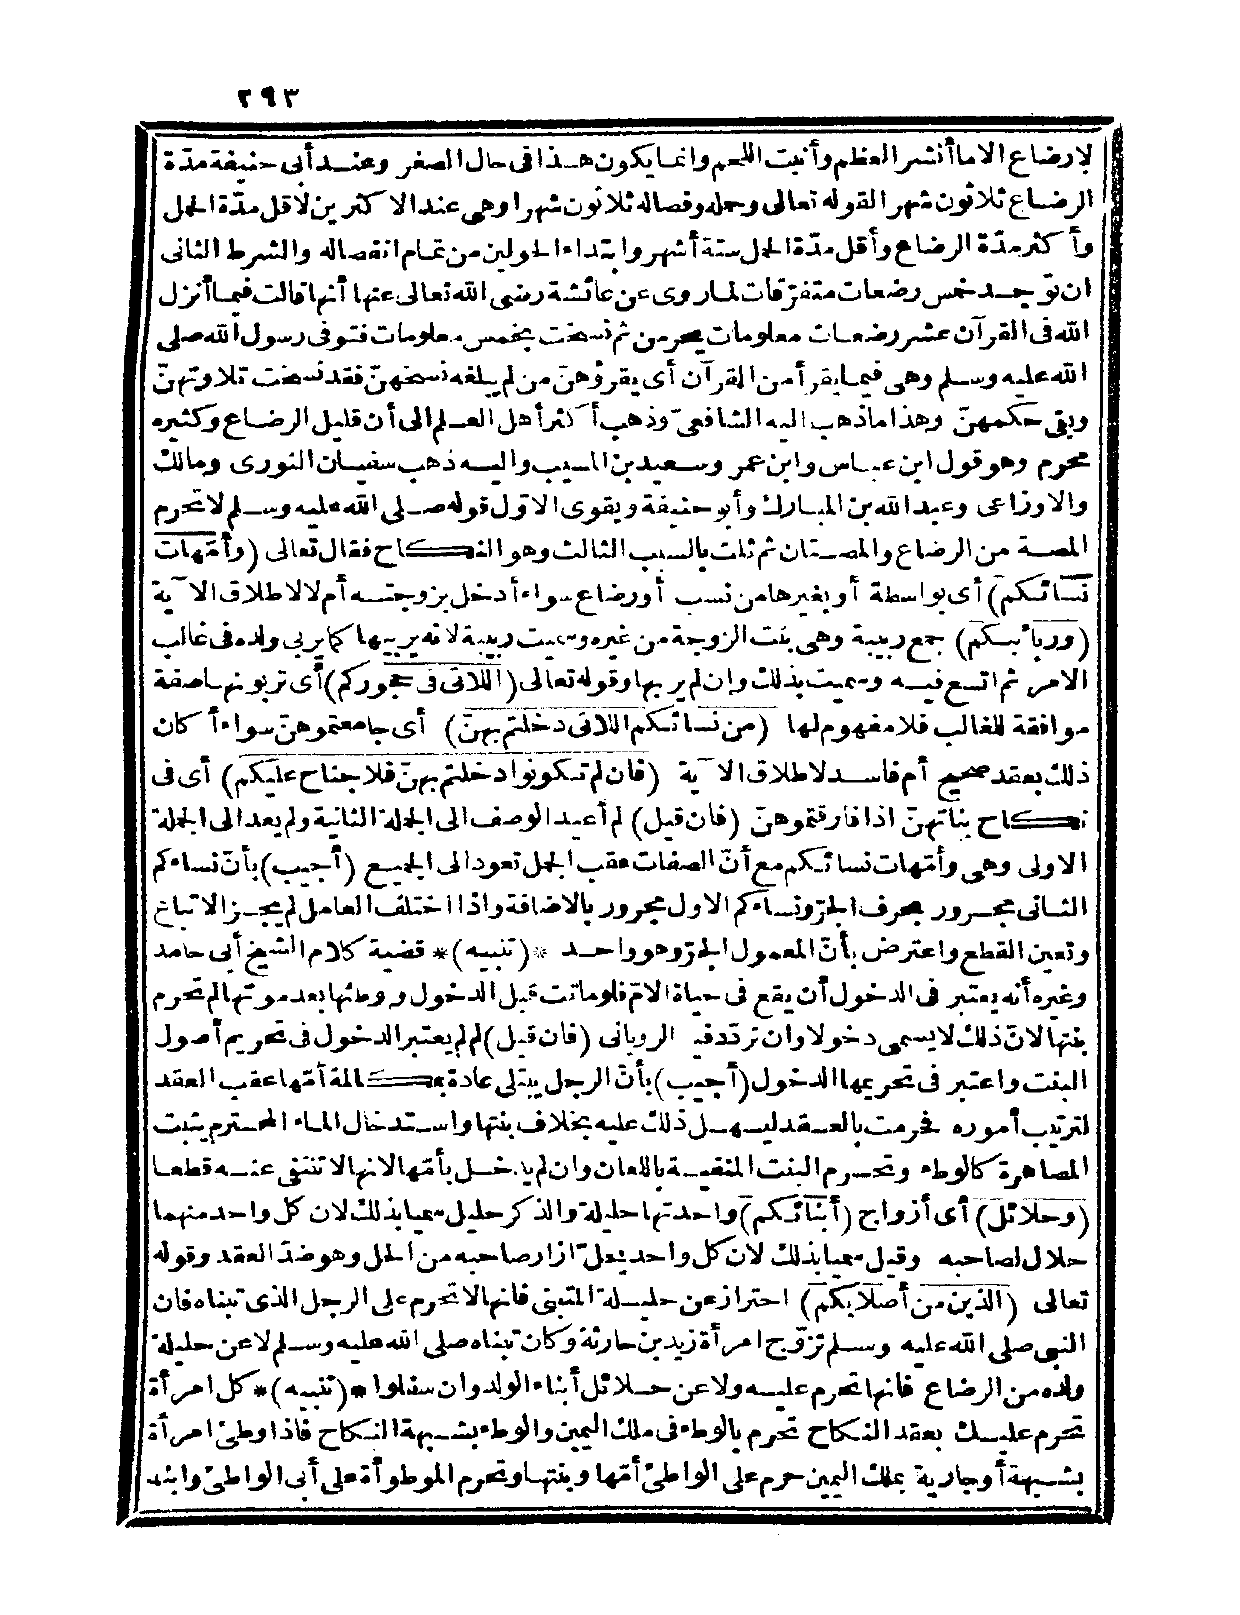 ٢٩٣
لارضاع الا ما أنشر العظم وأنبت اللحم وانما يكون هذا فى حال الصغر وعند أبى حنيفة مدّة
الرضاع ثلاثون شهرا لقوله تعالى وحمله وفصاله ثلاثون شهرا وهى عند الاكثرين لاقل مدّة الحمل
وأكثر مدّة الرضاع وأقل مدّة الحمل ستة أشهر وابتداء الحولين من تمام انفصاله والشرط الثانى
ان توجد خمس رضعات متفرّقات لما روى عن عائشة رضى الله تعالى عنها أنها قالت فيما أنزل
الله فى القرآن عشر رضعات معلومات يحرمن ثم نسخت بخمس معلومات فتوفى رسول الله صلى
الله عليه وسلم وهى فيما يقرأ من القرآن أى يقرؤهنّ من لم يبلغه نسخهنّ فقد نسخت تلاوتهنّ
وبقى حكمهنّ وهذا ما ذهب اليه الشافعىّ وذهب أكثر أهل العلم الى أن قليل الرضاع وكثيره
محرم وهو قول ابن عباس وابن عمر وسعيد بن المسيب واليه ذهب سفيان الثورى ومالك
والاوزاعى وعبد الله بن المبارك وأبو حنيفة ويقوى الاوّل قوله صلى الله عليه وسلم لا تحرم
المصة من الرضاع والمصتان ثم ثلث بالسبب الثالث وهو النكاح فقال تعالى (وأمّهات
نسائكم) أى بواسطة أو بغيرها من نسب أو رضاع سواء أدخل بزوجته أم لا لاطلاق الآية
(وربائبكم) جمع ربيبة وهى بنت الزوجة من غيره وسميت ربيبة لانه يربيها كما يربى ولده فى غالب
الامر ثم اتسع فيه وسميت بذلك وان لم يربها وقوله تعالى (اللاتى فى حجوركم) أى تربونها صفة
موافقة للغالب فلا مفهوم لها (من نسائكم اللاتى دخلتم بهنّ) أى جامعتموهنّ سواء أكان
ذلك بعقد صحيح أم فاسد لاطلاق الآية (فان لم تكونوا دخلتم بهنّ فلا جناح عليكم) أى فى
نكاح بناتهنّ اذا فارقتموهنّ (فان قيل) لم أعيد الوصف الى الجملة الثانية ولم يعد الى الجملة
الاولى وهى وأمّهات نسائكم مع أنّ الصفات عقب الجمل تعود الى الجميع (أجيب) بأنّ نساءكم
الثانى مجرور بحرف الجرّ ونساءكم الاول مجرور بالاضافة واذا اختلف العامل لم يجز الاتباع
وتعين القطع واعترض بأنّ المعمول الجرّ وهو واحد *(تنبيه)* قضية كلام الشيخ أبى حامد
وغيره أنه يعتبر فى الدخول أن يقع فى حياة الامّ فلو ماتت قبل الدخول ووطئها بعد موتها لم تحرم
بنتها لانّ ذلك لا يسمى دخولا وان تردّد فيه الرويانى (فان قيل) لم لم يعتبر الدخول فى تحريم أصول
البنت واعتبر فى تحريمها الدخول (أجيب) بأنّ الرجل يبتلى عادة بمكالمة أمّها عقب العقد
لترتيب أموره فحرمت بالعقد ليسهل ذلك عليه بخلاف بنتها واستدخال الماء المحترم يثبت
المصاهرة كالوطء وتحرم البنت المنفية باللعان وان لم يدخل بأمّها لانها لا تنتفى عنه قطعا
(وحلائل) أى أزواج (أبنائكم) واحدتها حليلة والذكر حليل سميا بذلك لان كل واحد منهما
حلال لصاحبه وقيل سميا بذلك لان كل واحد يحلّ ازار صاحبه من الحل وهو ضدّ العقد وقوله
تعالى (الذين من أصلابكم) احتراز عن حليلة المتبنى فانها لا تحرم على الرجل الذى تبناه فان
النبى صلى الله عليه وسلم تزوّج امرأة زيد بن حارثة وكان تبناه صلى الله عليه وسلم لا عن حليلة
ولده من الرضاع فانها تحرم عليه ولا عن حلائل أبناء الولد وان سفلوا *(تنبيه)* كل امرأة
تحرم عليك بعقد النكاح تحرم بالوطء فى ملك اليمين والوطء بشبهة النكاح فاذا وطئ امرأة
بشبهة أو جارية بملك اليمين حرم على الواطئ أمّها وبنتها وتحرم الموطوأة على أبى الواطئ وابنه